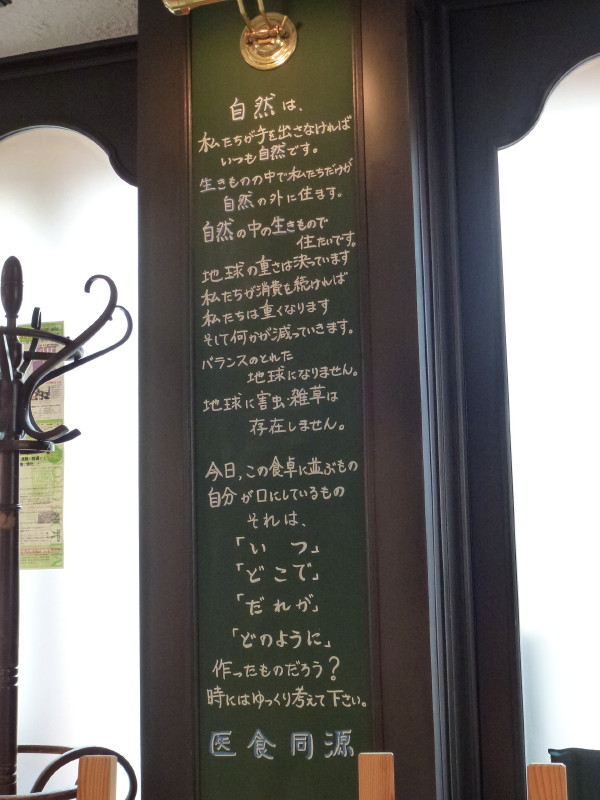 自然は、
私たちが手を出さなければ
いつも自然です。
生きものの中で私たちだけが
自然の外に住ます。
自然の中の生きもので
住たいです。
地球の重さは決っています
私たちが消費を続ければ
私たちは重くなります
そして何かが減っていきます。
バランスのとれた
地球になりません。
地球に害虫・雑草は
存在しません。
今日、この食卓に並ぶもの
自分が口にしているもの
それは、
「いつ」
「どこで」
「だれが」
「どのように」
作ったものだろう?
時にはゆっくり考えて下さい。
医食同源